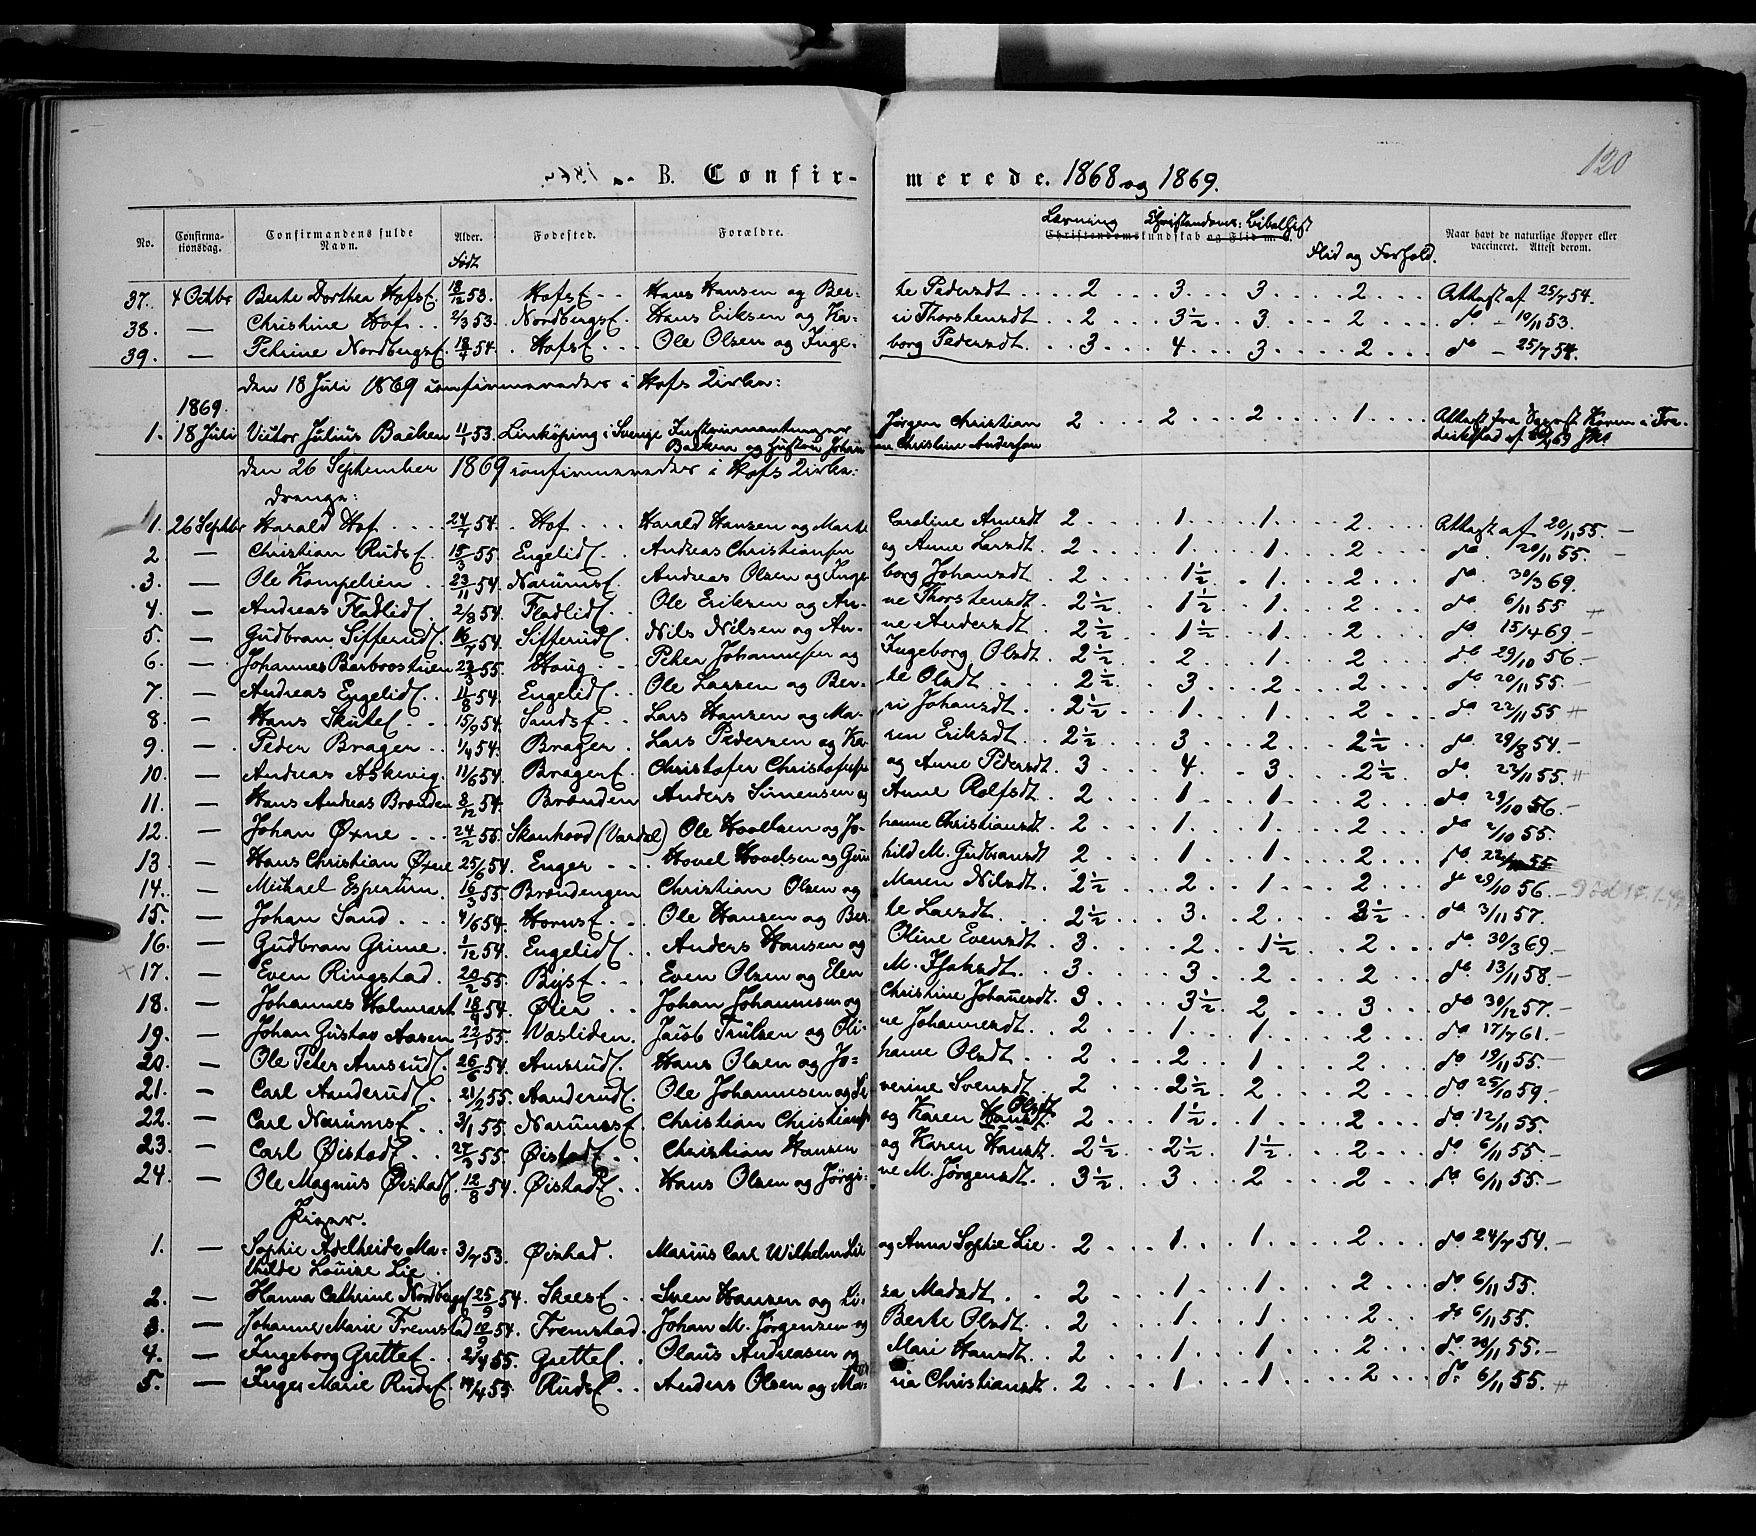 120
B. Confirmerede. 1868 og 1869.
No. Confirmationsdag. Confirmandens fulde Navn. Alder. Født Fødested. Forældre. Læsning Christendomskundskab og Flid m. v. Flid og Forhold. Naar havt de naturlige Kopper eller vaccineret. Attest derom.
37. 4 Octbr Berte Dorthea Hofs E. 18/12 53. Hofs E. Hans Hansen og Berte Pedersdt. 2 3 3 2 Attest af 25/7 54.
38. — Christine Hof 2/3 53. Nordbergs E. Hans Eriksen og Kari Thorstensdt. 2 3½ 3 2 do - 10/11 53.
39. — Petrine Nordbergs E. 18/4 54. Hofs E. Ole Olsen og Ingeborg Pedersdt. 3 4 3 2 do - 25/7 54.
den 18 Juli 1869 confirmeredes i Hofs Kirke:
1869.
1. 18 Juli Victor Julius Backen 11/1 53. Linköping i Sverige Backen og Hustru Johanne Christine Andersen Jørgen Christian 2 2 2 1 Attest fra
den 26 September 1869 confirmeredes i Hofs Kirke:
Drenge:
1. 26 Septbr Harald Hof 24/7 54. Hof Harald Hansen og Marte Caroline Arnesdt 2 1 1 2 Attest af 20/11 55.
2 — Christian Ruds E. 15/3 55. Engelid E. Andreas Christiansen og Anne Larsdt. 2 1 1 2 do. 20/11 55.
3. — Ole Kompelien 23/11 54. Narums E. Andreas Olsen og Ingeborg Johansdt. 2 1½ 1 2 do. 30/3 69.
4. — Andreas Fladlid E. 2/8 54. Fladlid E. Ole Eriksen og Anne Thorstensdt. 2½ 1½ 1 2 do. 6/11 55
5. — Gudbran Sifferud E. 16/7 54. Sifferud E. Nils Nilsen og Anne Andersdt. 2½ 1½ 1 2 do. 15/4 69.
6. — Johannes Berbrostuen 23/3 55. Houg Peter Johannesen og Ingeborg Olsdt 2½ 2 1 2 do. 29/10 56
7. — Andreas Engelid E. 11/8 54. Engelid E. Ole Larsen og Berte Olsdt 2½ 3 2 2 do. 20/11 55.
8. — Hans Skute E. 15/9 54. Sands E. Lars Hansen og Mari Johansdt. 2½ 1 1 2 do. 22/11 55
9. — Peder Brager 1/4 54. Brager. Lars Pedersen og Karen Eriksdt. 2½ 3 2 2½ do. 29/8 54.
10. — Andreas Askevig. 11/6 54. Brager E. Christofer Christofersen og Anne Pedersdt. 3 4 3 2½ do. 22/11 55.
11. — Hans Andreas Brønden 8/12 54. Brønden Anders Simensen og Anne Rolfsdt. 2 1 1 2 do 29/10 56.
12. — Johan Øxne 24/2 55. Skonhovd (Vardal) Ole Hovelsen og Johanne Christiansdt. 2 1 1 2 do 2/10 55.
13 — Hans Christian Øxne 25/6 54. Enger Hovel Hovelsen og Gunhild M. Gudbransdt 2 1 1 2 do
14. — Michael Esperum. 16/3 55. Brøndengen Christian Olsen og Maren Nilsdt. 2½ 2 1 2 do 29/10 56.
15. — Johan Sand 4/6 54. Horns E. Ole Hansen og Berte Larsdt. 2½ 3 2 2½ do. 3/11 57.
16. — Gudbran Grime. 1/12 54. Engelid E. Anders Hansen og Oline Evensdt. 3 2 1½ 2 do. 30/3 69.
17. — Even Ringstad. 20/2 55. Bøs E. Even Olsen og Elen M. Isaksdt. 3 3 2 2 do. 13/11 58.
18. — Johannes Holmrast. 18/8 54. Øier Johan Johannesen og Christine Johannesdt. 3 3½ 2 3 do 30/12 57.
19. — Johan Gustav Aasen 22/1 55. Vasliden. Jacob Trulsen og Oline Johannesdt. 2 1 1 2 do. 17/7 61.
20. — Ole Peter Amsrud E. 26/6 54. Amsrud E. Hans Olsen og Johanne Olsdt 2 2 1 2 do 19/11 55.
21. — Carl Aanderud E. 21/2 55. Aanderud E. Ole Johannesen og Severine Svensdt. 2 2½ 2 2 do. 25/10 59.
22. — Carl Narums E. 3/1 55. Narums E. Christian Christians. og Karen Hansdt. Olsdt 2 1½ 1 2 do. 12/11 55.
23. — Carl Øistad E. 27/2 55. Øistad E. Christian Hansen og Karen Hansdt. 2½ 2½ 1½ 2 do. 6/11 55.
24. — Ole Magnus Øistad E. 12/8 54. Øistad E. Hans Olsen og Jørgine M. Jørgensdt. 3½ 3 2 2 do. 6/11 55.
Piger.
1. — Sophie Adelheide Mathilde Louise Lie 3/7 53. Øistad. Marius Carl Wilhelm Lie og Anna Sophie Lie 2 1 1 2 do 24/7 54.
2. — Hanna Cathrine Nordbergs E 25/9 54. Skees E. Sven Hansen og Lisa Madsdt. 2 1 1 2 do. 6/11 55.
3. — Johanne Marie Fremstad 10/9 54. Fremstad. Johan M. Jørgensen og Berte Olsdt. 2 1 1 2 do 6/11 55.
4. — Ingeborg Grette E. 2/4 55. Grette E. Olaus Andreasen og Mari Hansdt. 2 1 1 2 do. 20/11 55.
5. — Inger Marie Ruds E. 19/4 55. Ruds E. Anders Olsen og Maria Christiansdt. 2 1 1 2 do. 6/11 55.